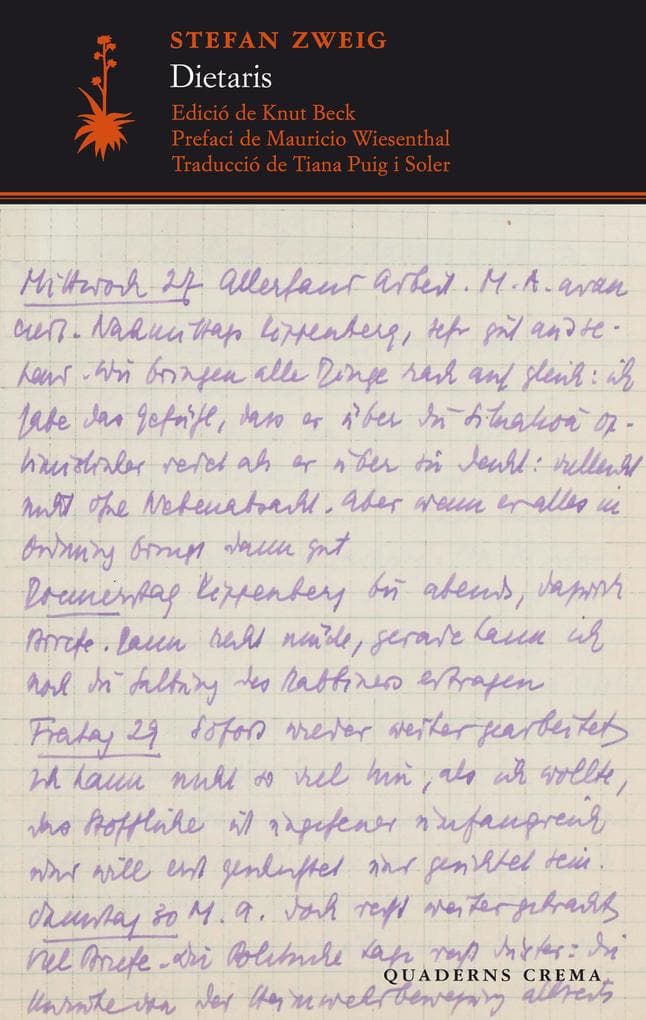 STEFAN ZWEIG
Dietaris
Edició de Knut Beck
Prefaci de Mauricio Wiesenthal
Traducció de Tiana Puig i Soler
Mittwoch 27 Allerhand Arbeit. M. A. avan
ciert. Nachmittags Kippenberg, sehr gut
Wir bringen alle Dinge rasch auf gleich: ich
habe das Gefühl, dass er über die Situation op-
timistischer redet als er über sie denkt: vielleicht
nicht ohne Nebenabsicht. Aber wenn er alles in
Ordnung bringt dann gut
Donnerstag Kippenberg bis abends,
Briefe. Dann recht müde, gerade kann ich
noch die Haltung des Rabbiners ertragen
Freitag 29 Sofort wieder weiter gearbeitet
Ich kann nicht so viel tun, als ich wollte,
das Stoffliche ist ungeheuer umfangreich
und will erst gesichtet sein.
Samstag 30 M. A. doch recht weiter gebracht
Viel Briefe. Die Politische Lage recht düster: die
von der Heimwehrbewegung
QUADERNS CREMA